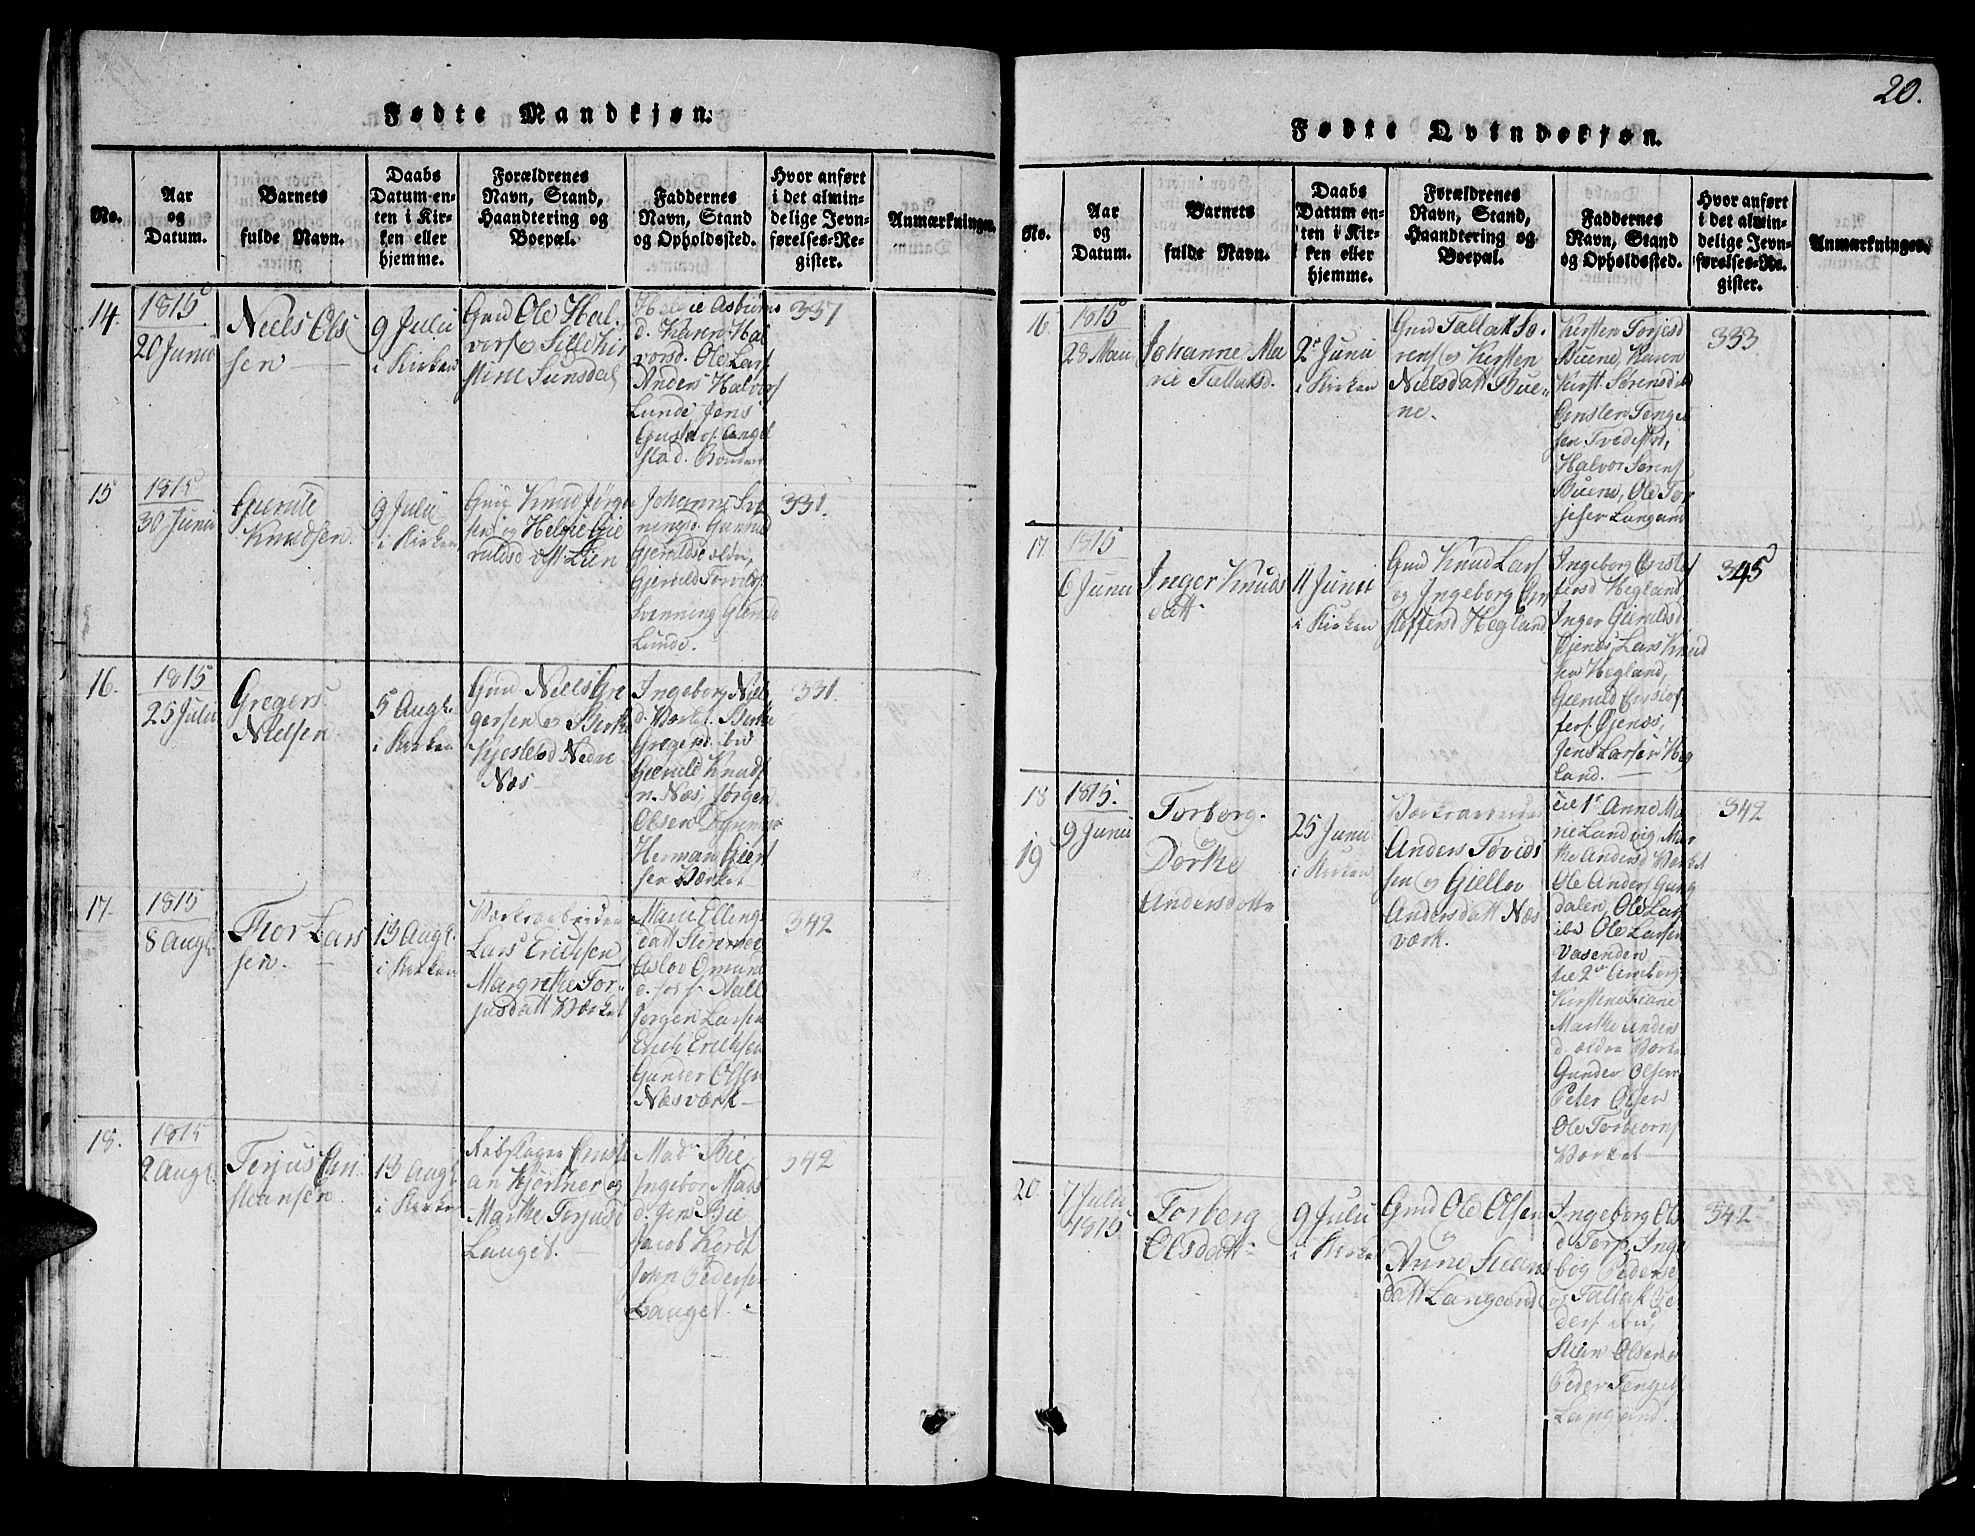 Fødte Mandkjøn.
No.
Aar
og
Datum.
Barnets
fulde Navn.
Daabs
Datum en-
ten i Kir-
ken eller
hjemme.
Forældrenes
Navn, Stand,
Haandtering og
Boepæl.
Faddernes
Navn, Stand
og Opholdssted.
Hvor anført
i det almin-
delige Jevn-
førelses-Re-
gister.
Anmærkninger.
14.
1815
20 Junii
Niels Ols
sen
9 Julii
i Kirken
Gmd Ole Hal
vors og Sille Kir
stine Sunsdal
Helvie Asbiørns
d. Karen Hal
vorsd. Ole Lars
Anders Halvors
Lunde Jens
Gustavs. Angel
stad.
337
15
1815
30 Junii
Knudsen.
9 Julii
i Kirken
Gmd Knud Jørge
sen og Helvie Gie
ruldsd vest Lien
Johanne
Gunnild
Gieruldse
Gieruld
Lunde.
331.
16.
1815
25 Julii
Gregers
Nielsen
5 Augt.
i Kirken
Gmd Niels Gre
gersen og Birthe
Nedre
Næs
Ingeborg Niels
d. Værket. Birthe
Gregersd ibd
Gieruld Knuds
n. Næs, Jørgen
Olsen
Herman Giert
sen Værket
331.
17.
1815
8 Augt.
Thor Lars
sen.
13 Augt.
i Kirken
Værksarbeider
Lars Erichsen
Margrethe Tor
jusdatt Værket
Marie Elling
datt
Aslov Omund
d.
Jørgen Larsen
Erich Erichsen
Gunder Olsen
Næsværk
342
18.
1815
9 Augt.
Terjus Chri
stiansen
13 Augt
i Kirken
Rebslager Christi
an Kjørtner og
Marthe Terjusd
Lauget.
Mad. Bie
Ingebor Mads
d. Jens Bie
Jacob Kordt
John Pedersen
Lauget.
342
20.
Fødte Qvindekjøn.
No.
Aar
og
Datum.
Barnets
fulde Navn.
Daabs
Datum en-
ten i Kir-
ken eller
hjemme.
Forældrenes
Navn, Stand,
Haandtering og
Boepæl.
Faddernes
Navn, Stand
og Opholdssted.
Hvor anført
i det almin-
delige Jevn-
førelses-Re-
gister.
Anmærkninger.
16.
1815
28 Maii
Johanne Ma
rie Tallaksd.
2 Junii
i Kirken
Gmd Tallak Sø
rens og Kirsten
Nielsdatt Bue
ne.
Kirsten Torjesd
Buene, Karen
Kirst. Sørensd ibd
Christen Tenge
sen Tvedest.,
Halvor Sørens
Buene, Ole Tor
jesen Langand
333
17.
1815
6 Junii
Inger Knuds
datt
11 Junii
i Kirken
Gmd Knud Lars
og Ingeborg Chri
stoffersd Hegland
Ingeborg Christof
fersd Hegland
Inger Gieruldsd
Gjenæs, Lars Knud
sen Hegland,
Gieruld Christof
fers. Gjenæs,
Jens Larsen Heg
land.
345
18
19
1815.
9 Junii
Torborg
og
Dorthe
Andersdøttre
25 Junii
i Kirken
Værksarbeider
Anders Tovids
sen og Giellov
Andersdatt Næs
værk.
til 1e Anne Ma
rie Landvig Mar
the Andersd Værket
Ole Anders Gang
dalen, Ole Lars
ibd Ole Larsen
Vasenden
til 2en Amborg
Kirstine
Marthe Anders
d. ældre Værket
Gunder Olsen
Peter Olsen
Ole Torbiørns
Værket
342
20
7 Julii
1815
Torberg
Olsdatt
9 Julii
i Kirken
Gmd Ole Olsen
og
Anne Steens
datt Langand
Ingeborg Ols
d Torp, Inge
borg Peders
og Tallak Pe
ders. ibd,
Steen Olsen
Peder Tengels
Langand.
342